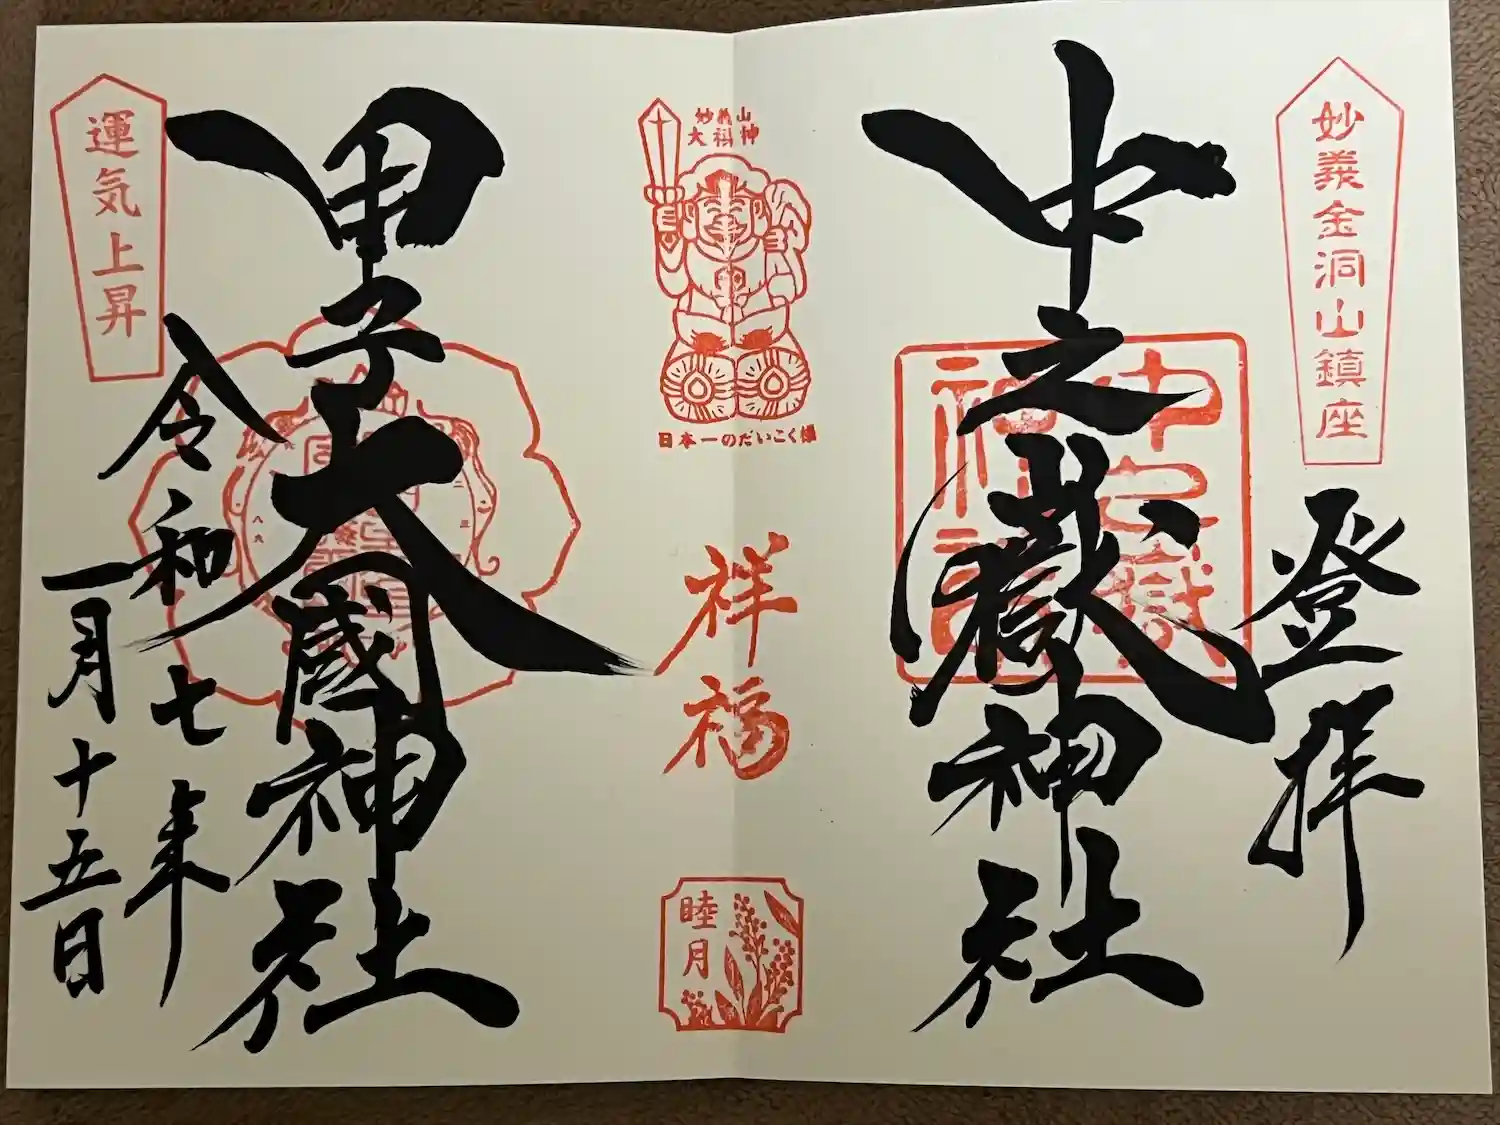 妙義金洞山鎮座
登拝
中之嶽神社
中之嶽神社
妙義山
大福神
日本一のだいこく様
祥福
睦月
甲子大國神社
運気上昇
令和七年
一月十五日